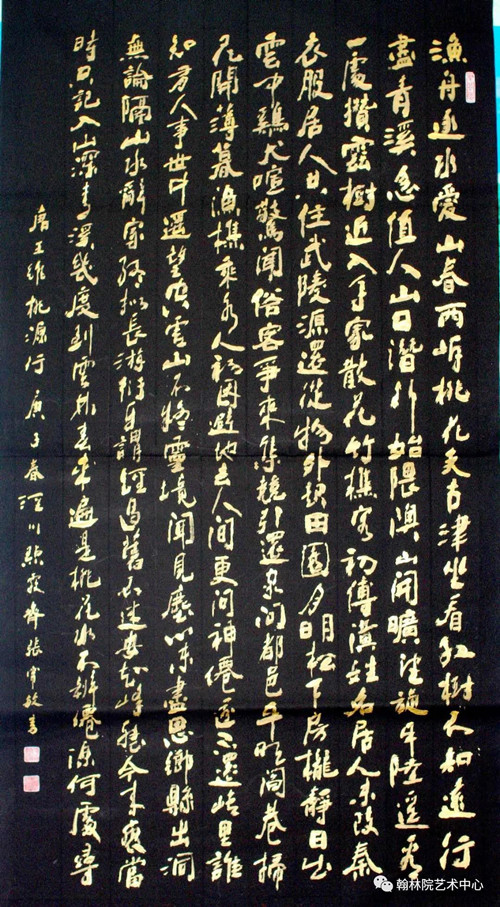 漁舟逐水愛山春两岸桃花夾古津坐看紅樹不知遠行
盡青溪忽值人山口潛行始隈隩山開曠望旋平陸遥看
一處攢雲樹近入千家散花竹樵客初傳漢姓名居人未改秦
衣服居人共住武陵源還從物外起田園月明松下房櫳靜日出
雲中雞犬喧驚聞俗客爭來集競引還家問都邑平明閭巷掃
花開薄暮漁樵乘水入初因避地去人間更問神僊遂不還峽里誰
知有人事世中遥望空雲山不疑靈境聞見塵心未盡思鄉縣出洞
無論隔山水辭家終擬長游衍自謂經過舊不迷安知峰壑今來變當
時只記入山深青溪幾度到雲林春來遍是桃花水不辨僊源何處尋
唐王維桃源行 庚子春 川霞齋張敏書
翰林院艺术中心